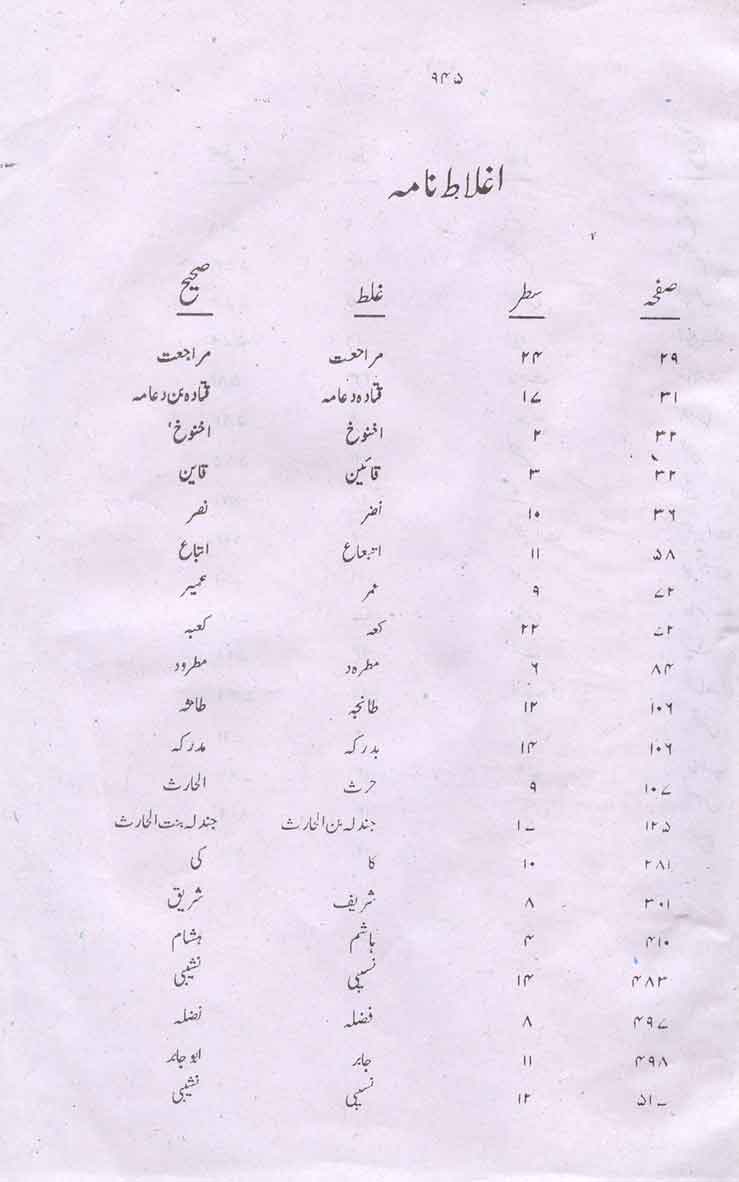 ۹۴۵
اغلاط نامہ
صفحہ سطر غلط صحیح
۲۹ ۲۴ مراجعت مراجعت
۳۱ ۱۷ قتادہ دعامہ قتادہ بن دعامہ
۳۲ ۲ اخنوخ اخنوخ
۳۲ ۳ قائین قاین
۳۶ ۱۰ نضر نصر
۵۸ ۱۱ اتبعاع اتباع
۷۲ ۹ عمر عمیر
۷۲ ۲۲ کعہ کعبہ
۸۴ ۶ مطرہد مطرود
۱۰۶ ۱۲ طانجہ
۱۰۶ ۱۴ بدرکہ مدرکہ
۱۰۷ ۹ حرث الحارث
۱۲۵ ۱۷ جندلہ بن الحارث جندلہ بنت الحارث
۲۸۱ ۱۰ کا کی
۳۰۱ ۸ شریف شریق
۴۱۰ ۴ ہاشم ہشام
۴۸۳ ۱۴ نسیبی نشیبی
۴۹۷ ۸ فضلہ نضلہ
۴۹۸ ۱۱ جابر ابو جابر
۵۱۷ ۱۲ نسیبی نشیبی